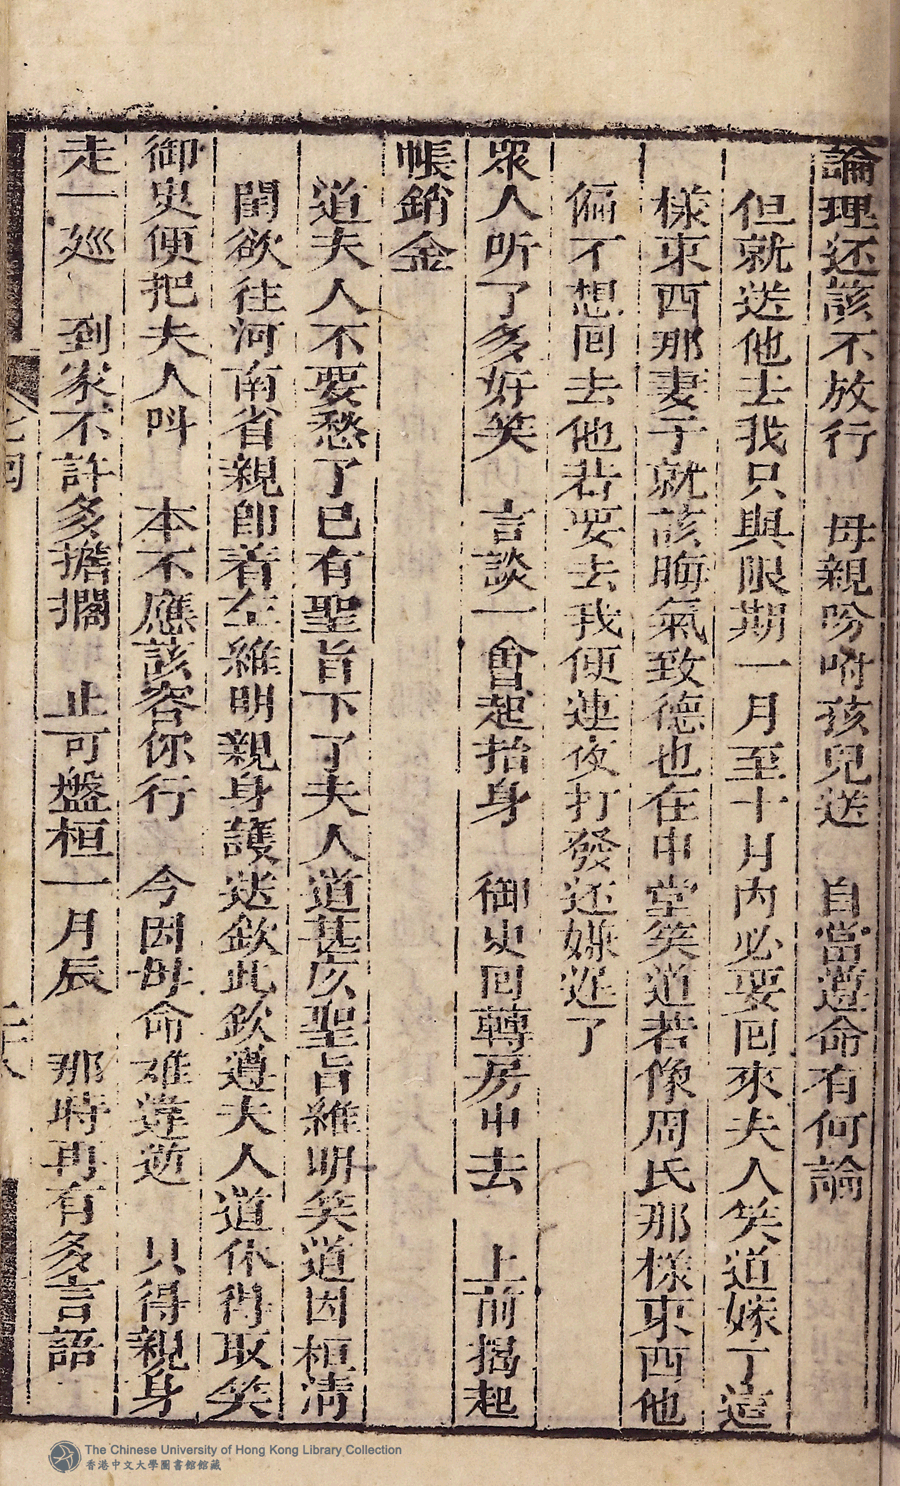 論理还該不放行　母親吩咐孩兒送　自當遵命有何論
但就送他去我只與限期一月至十月內必要囘來夫人笑道嫁了這
樣東西那妻子就該晦氣致德也在中堂笑道若像周氏那樣東西他
偏不想囘去他若要去我便連夜打發还嫌遲了
衆人听了多好笑　言談一會起抬身　御史囘轉房中去　上前揭起
帳銷金
道夫人不要愁了已有聖旨下了夫人道甚広聖旨維明笑道因桓清
閨欲往河南省親即着左維明親身護送欽此欽遵夫人道休得取笑
御史便把夫人叫　本不應該容你行　今因母命难違逆　只得親身
走一廵　到家不許多擔擱　止可盤桓一月辰　那時再有多言語
二十八
The Chinese University of Hong Kong Library Collection
香港中文大學圖書館館藏